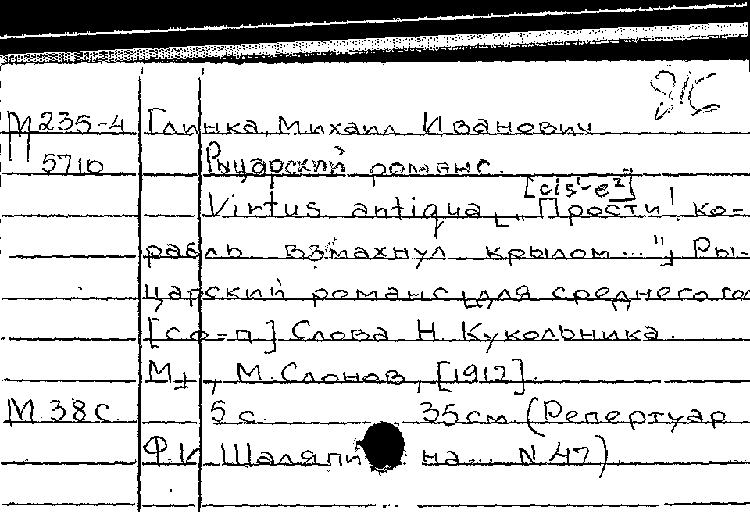 М 235-4 Глинка, Михаил Иванович
5710 Рыцарский романс.
[cis¹-e²]
Virtus antiqua, „Прости! ко-
рабль взмахнул крылом..."; Ры-
царский романс для среднего го
[со=п] Слова Н. Кукольника.
М., М. Слонов, [1912].
М 38с 5 с. 35 см (Репертуар
Ф.И. Шаляпи на... N 47)